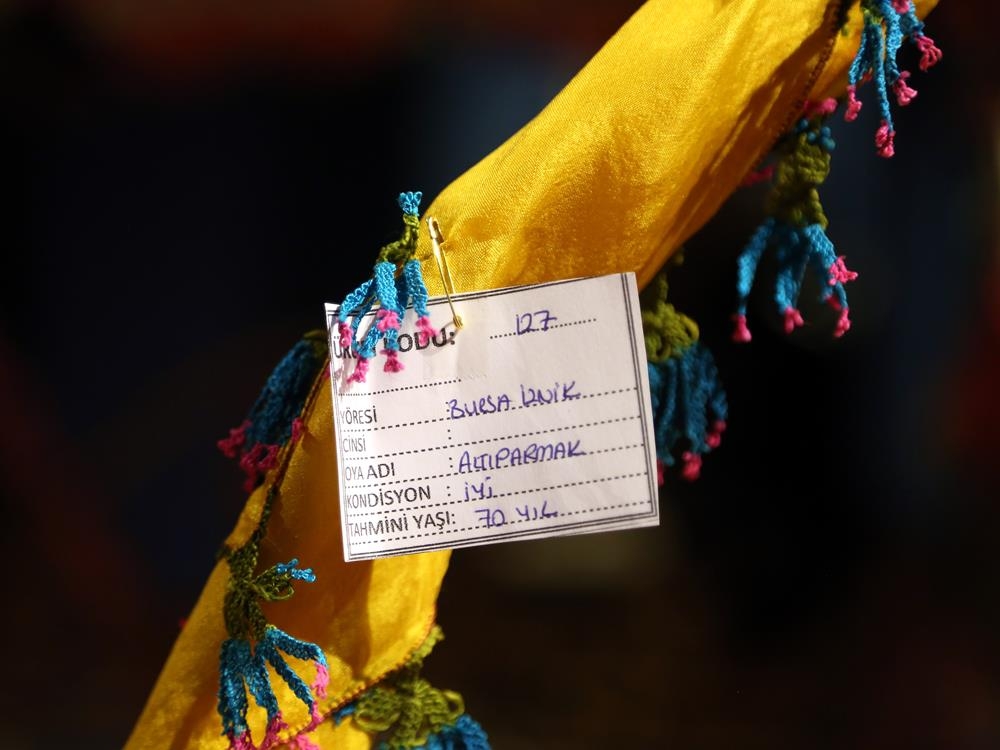 ÜRÜN KODU: 127
YÖRESİ : BURSA İZNİK
CİNSİ :
OYA ADI : ALTIPARMAK
KONDİSYON : İYİ
TAHMİNİ YAŞI: 70 YIL